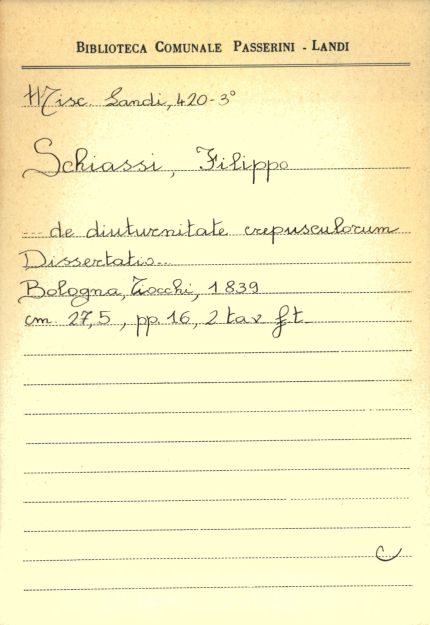 BIBLIOTECA COMUNALE PASSERINI - LANDI
Misc. Landi, 420-3°
Schiassi, Filippo
... de diuturnitate crepusculorum
Dissertatio...
Bologna, Tocchi, 1839
cm. 27,5, pp. 16, 2 tav. f.t.
C